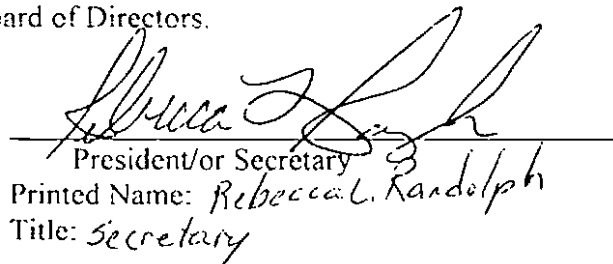 ard of Directors.
Rebecca L Randolph
President/or Secretary
Printed Name: Rebecca L. Randolph
Title: Secretary